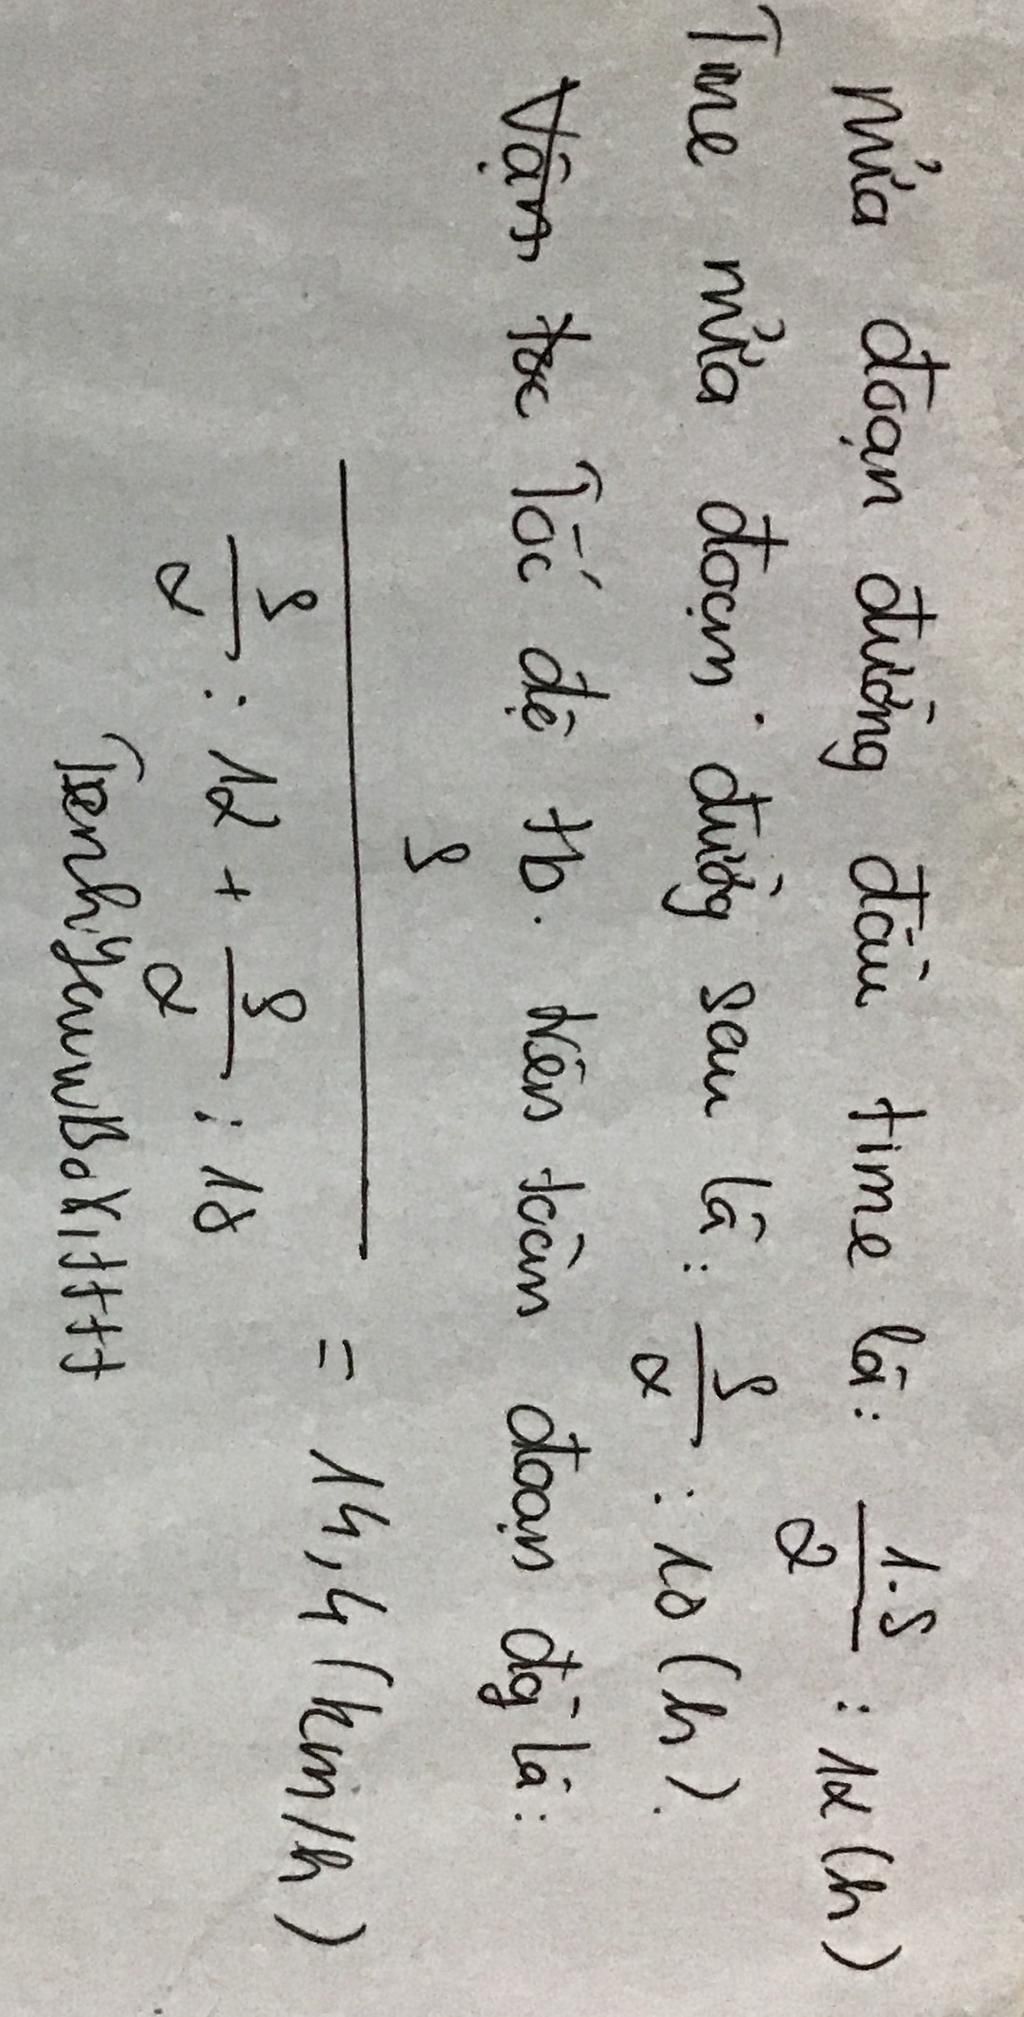 Nửa đoạn đường đầu time là: 1.S/2 : 12 (h)
Time nửa đoạn đường sau là: S/2 : 18 (h).
Vận tốc Tốc độ tb. trên toàn đoạn đg là:
S / (S/2 : 12 + S/2 : 18) = 14,4 (km/h)